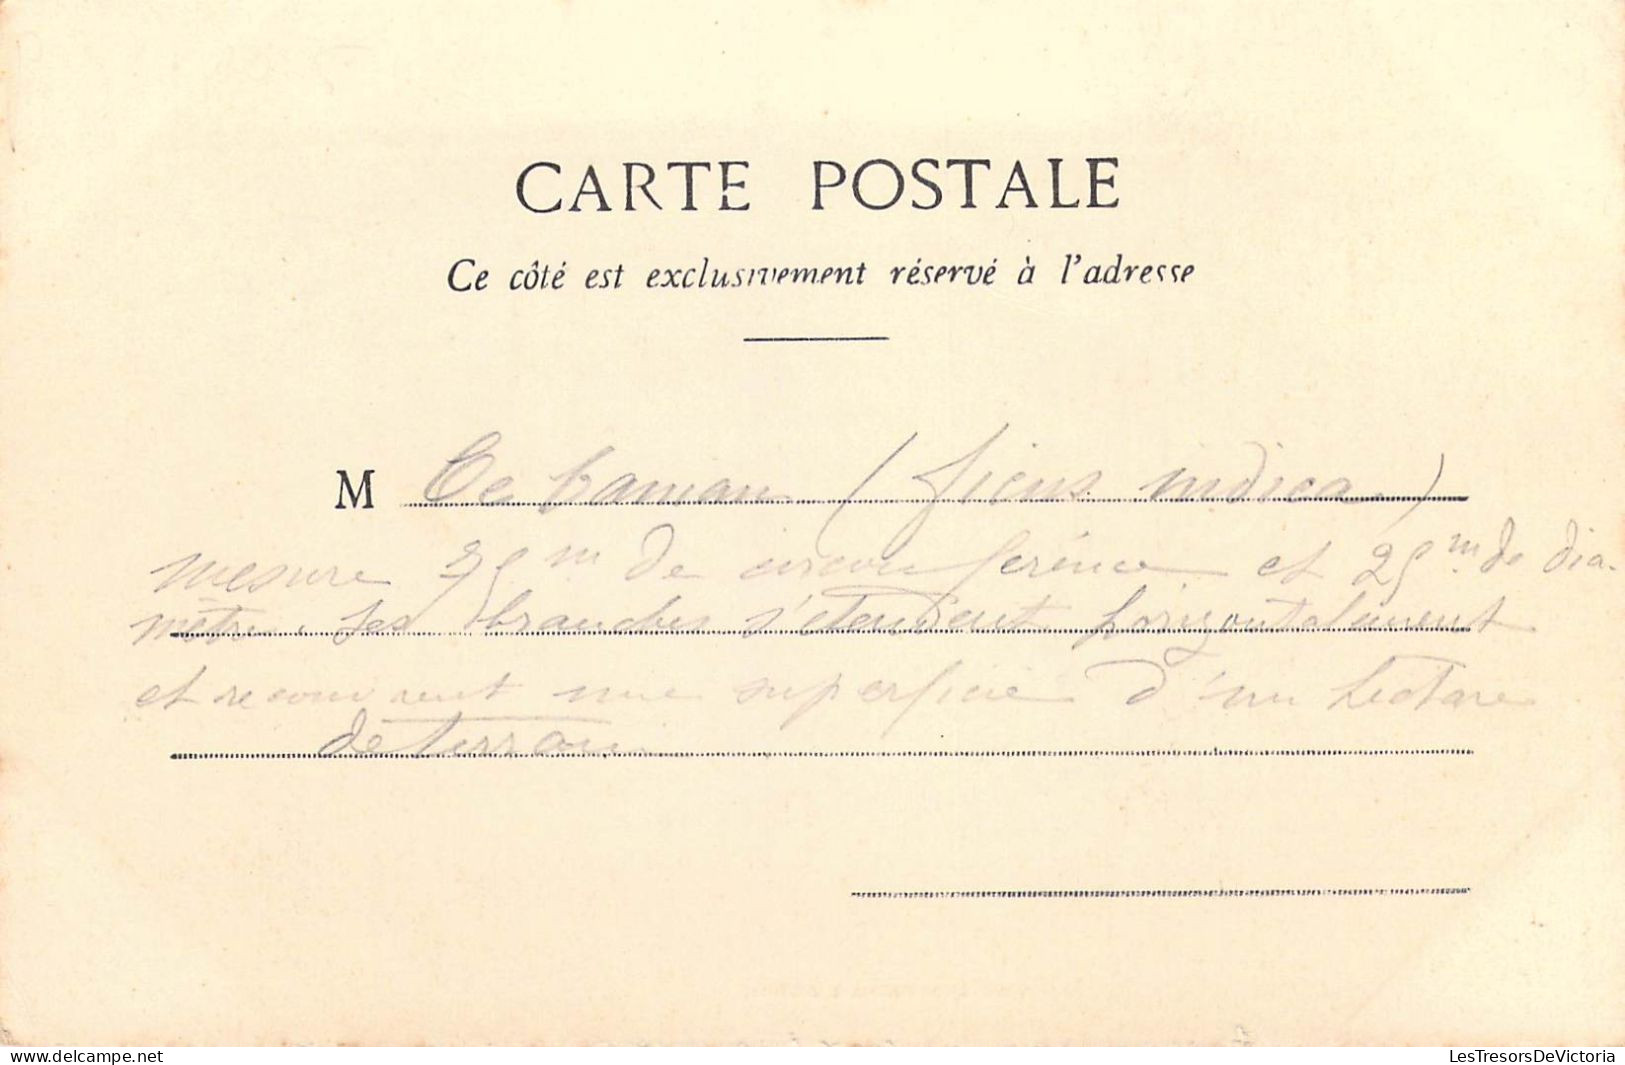 CARTE POSTALE
Ce côté est exclusivement réservé à l'adresse
M Ce banian (ficus indica)
mesure 75 m de circonférence et 25 m de dia-
mètre. Ses branches s'étendent horizontalement
et recouvrent une superficie d'un hectare
de terrain
LesTresorsDeVictoria
img256.cmp.jpeg